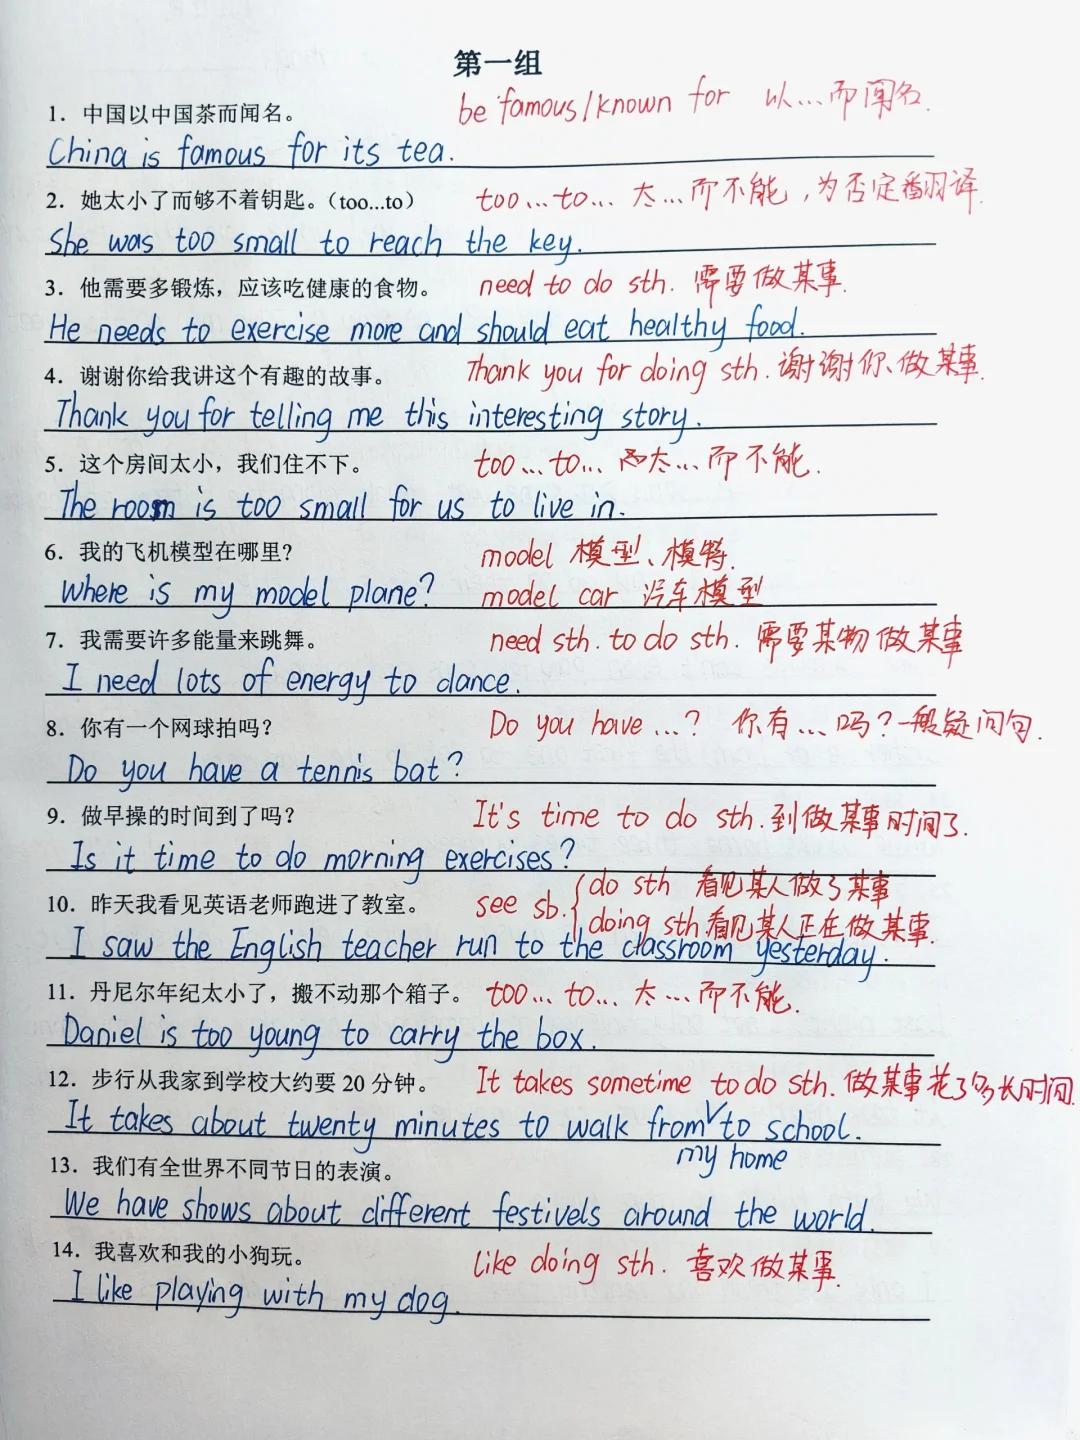 第一组
1. 中国以中国茶而闻名。 be famous/known for 以...而闻名.
China is famous for its tea.
2. 她太小了而够不着钥匙。(too...to) too...to... 太...而不能,为否定翻译.
She was too small to reach the key.
3. 他需要多锻炼，应该吃健康的食物。 need to do sth. 需要做某事.
He needs to exercise more and should eat healthy food.
4. 谢谢你给我讲这个有趣的故事。 Thank you for doing sth. 谢谢你做某事.
Thank you for telling me this interesting story.
5. 这个房间太小，我们住不下。 too...to... 太...而不能.
The room is too small for us to live in.
6. 我的飞机模型在哪里? model 模型、模特.
Where is my model plane? model car 汽车模型
7. 我需要许多能量来跳舞。 need sth. to do sth. 需要某物做某事
I need lots of energy to dance.
8. 你有一个网球拍吗? Do you have ...? 你有...吗?一般疑问句.
Do you have a tennis bat?
9. 做早操的时间到了吗? It's time to do sth.到做某事时间了.
Is it time to do morning exercises?
10. 昨天我看见英语老师跑进了教室。 see sb. do sth 看见某人做了某事
doing sth.看见某人正在做某事.
I saw the English teacher run to the classroom yesterday.
11. 丹尼尔年纪太小了，搬不动那个箱子。 too... to... 太...而不能.
Daniel is too young to carry the box.
12. 步行从我家到学校大约要 20 分钟。 It takes sometime to do sth. 做某事花了多长时间.
It takes about twenty minutes to walk from to school.
my home
13. 我们有全世界不同节日的表演。
We have shows about different festivels around the world.
14. 我喜欢和我的小狗玩。 like doing sth. 喜欢做某事.
I like playing with my dog.